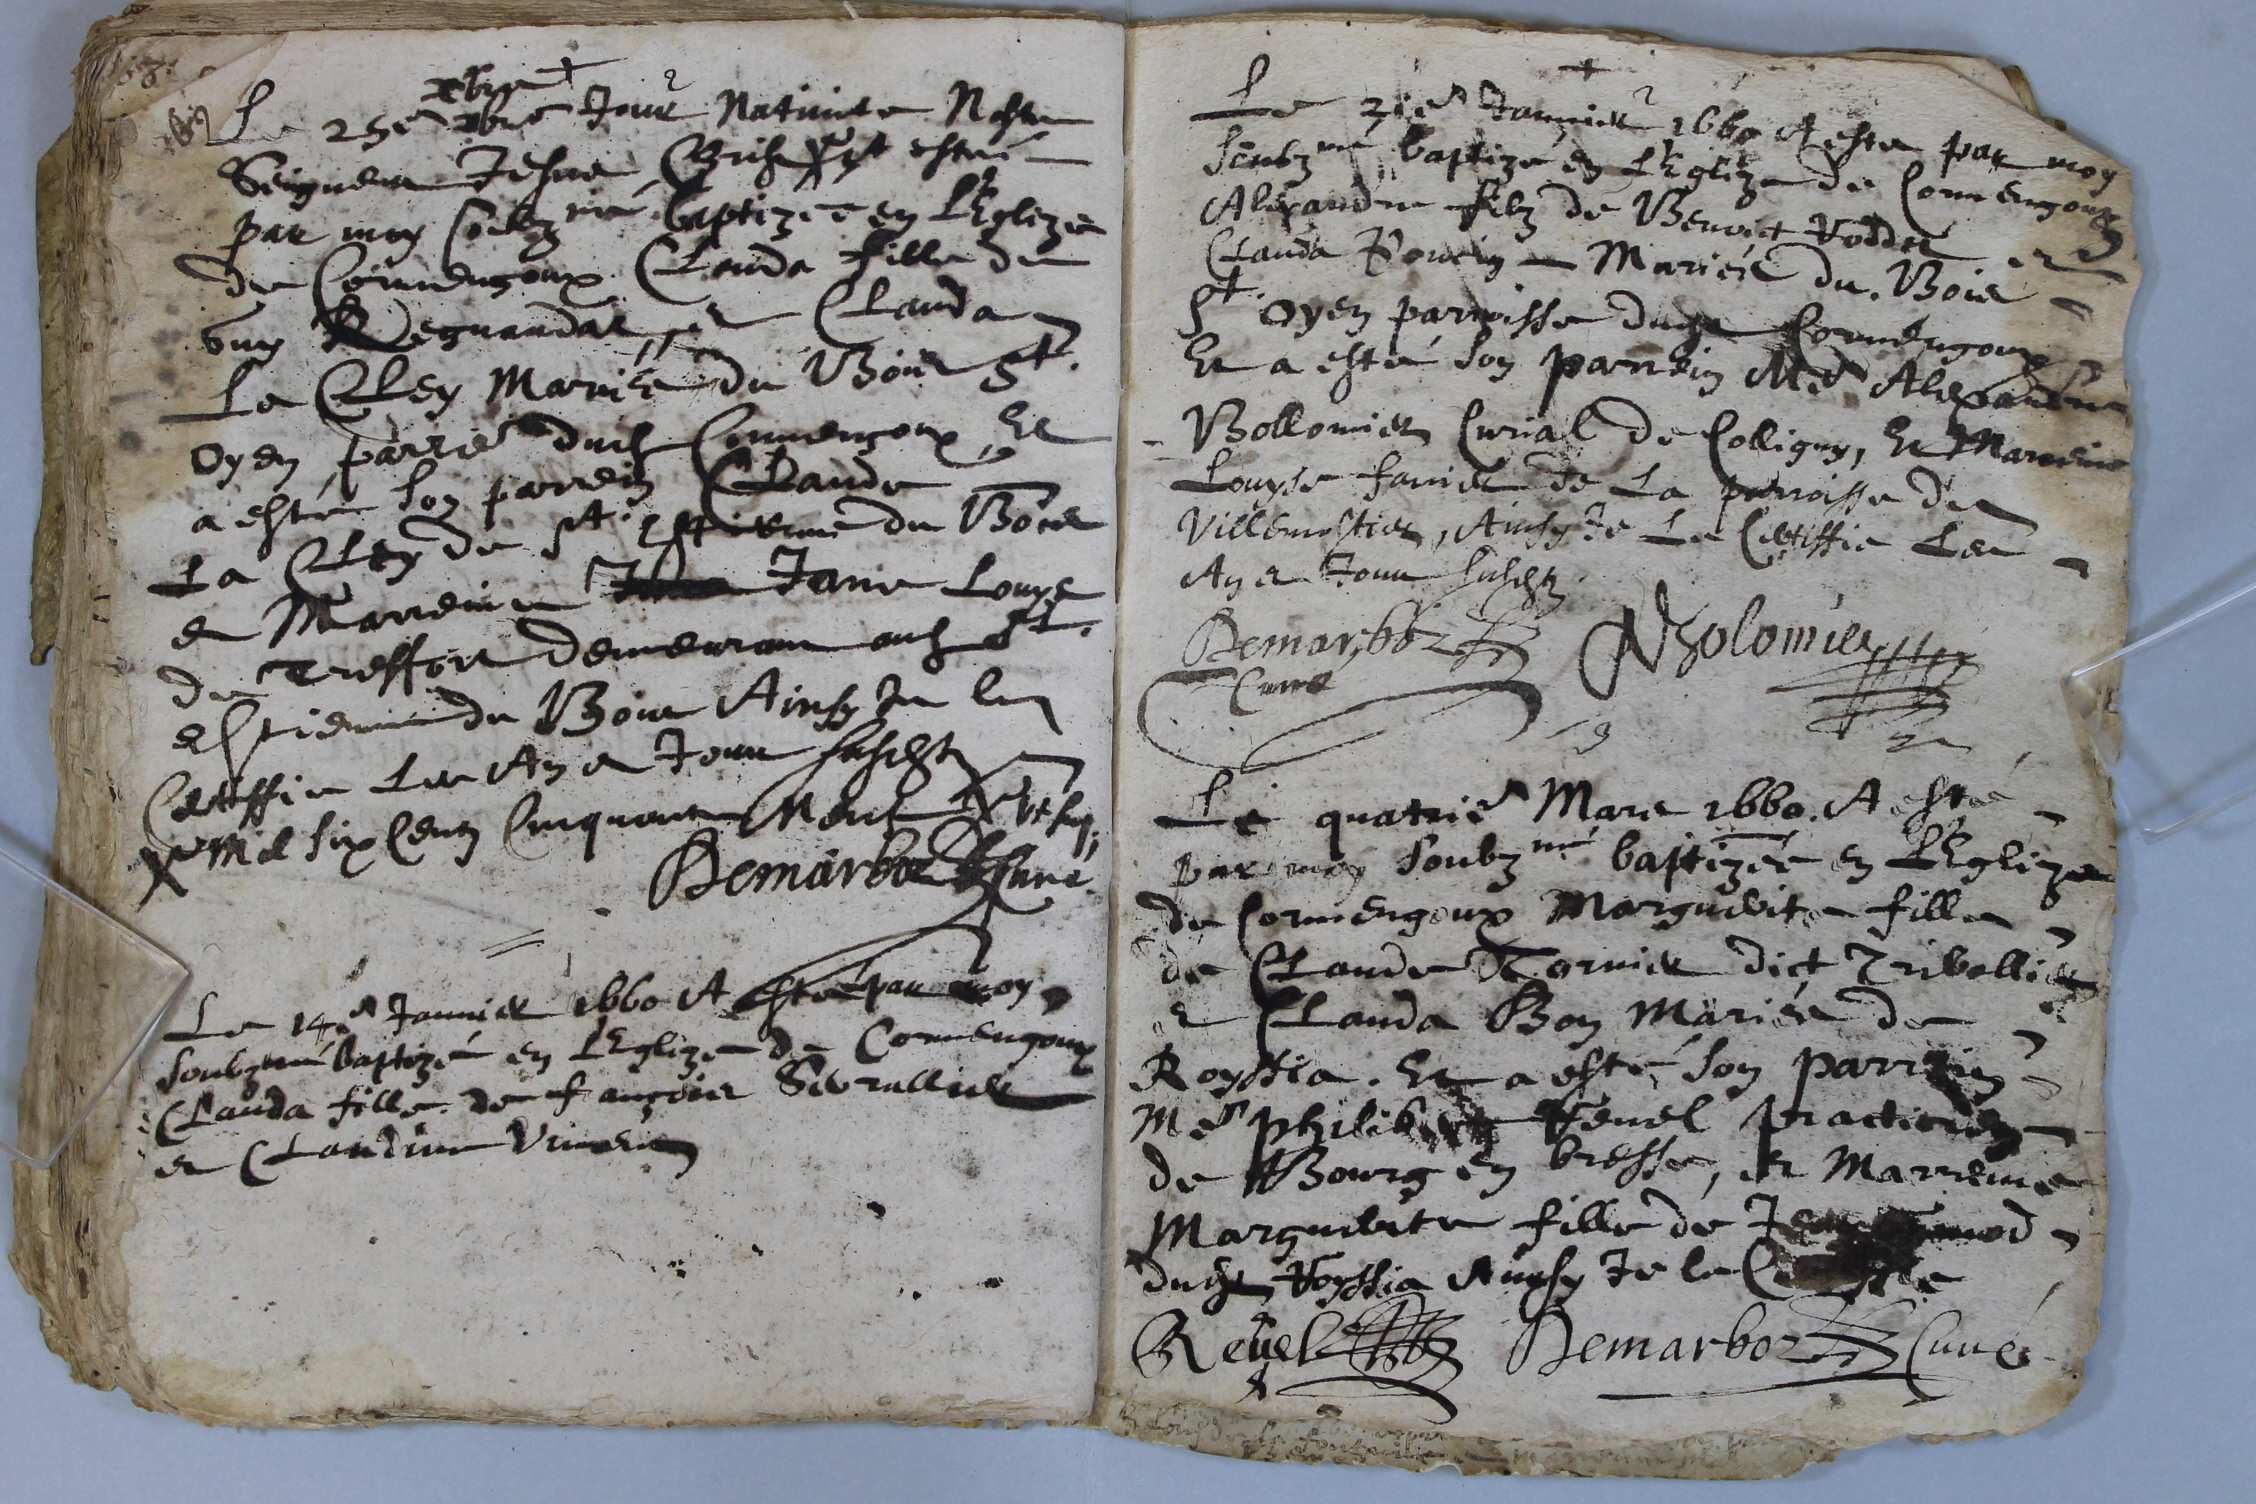 xbre
Le 25e xbre Jour Natiuite Nostre
Seigneur Jesus Crist X et esté
par moy soubzné baptizée en l'Eglize
de Cormengoux Clauda fille de
Guy Regnaudat, et Clauda
La Cley Mariés du Bois St.
Oyen parre dud Cormengoux, Et
a esté son parrein Claude
La Cley de St. Estienne du Bois
et Marreine Jane Louys
de Treffort demeurant aud St.
Estienne du Bois Ainsy Je le
Certiffie Les An et Jour susdt
X Mil six Cent Cinquante Neuf X
Demarboz Curé.
Le 14e Januier 1660 A esté par moy
soubzné baptizé en l'Eglize de Cormengoux
Clauda fille de françois Seurallier
et Claudine
Le 21e Januier 1660 A esté par moy
soubzné baptizé en l'Eglize de Cormengoux
Alexandre filz de Benoict Roddet et
Clauda Mariés du Bois
St. Oyen parroisse dudt Cormengoux
Et a esté son parrein Me Alexandre
Bollomier Curial de Colligny, Et Marreine
Louyse fanier de La parroisse de
Villemostier, Ainsy Je Le Certiffie Les
An et Jour susdt
Demarboz Bolomier
Curé
Le quatrie Mars 1660. A esté
par moy soubzné baptizée en l'Eglize
de Cormengoux Marguerite fille
de Claude Tornier dict Triballier
et Clauda Bon Mariés de
Royssia. Et a esté son Parrein
Me Philibert Reuel practicien
de Bourg en bresse, et Marreine
Marguerite fille de
dudt Royssia Ainsy Je le Certiffie
Reuel Demarboz Curé